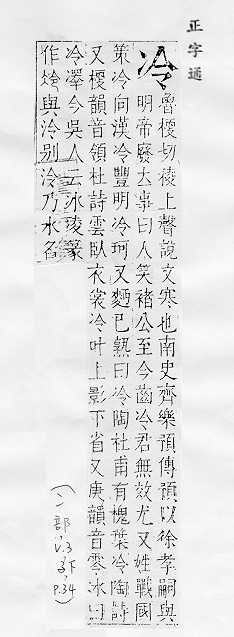 正字通
冷
魯梗切稜上聲說文寒也南史齊樂預傳預以徐孝嗣與
明帝廢立事曰人笑褚公至今齒冷君無效尤又姓戰國
策冷向漢冷豐明冷珂又麵已熟曰冷陶杜甫有槐葉冷陶詩
又梗韻音領杜詩雲臥衣裳冷叶上影下省又庚韻音零冰
冷澤今吳人云冰㖫篆
作 與泠别泠乃水名
(冫部
V.3
子下
P.34)